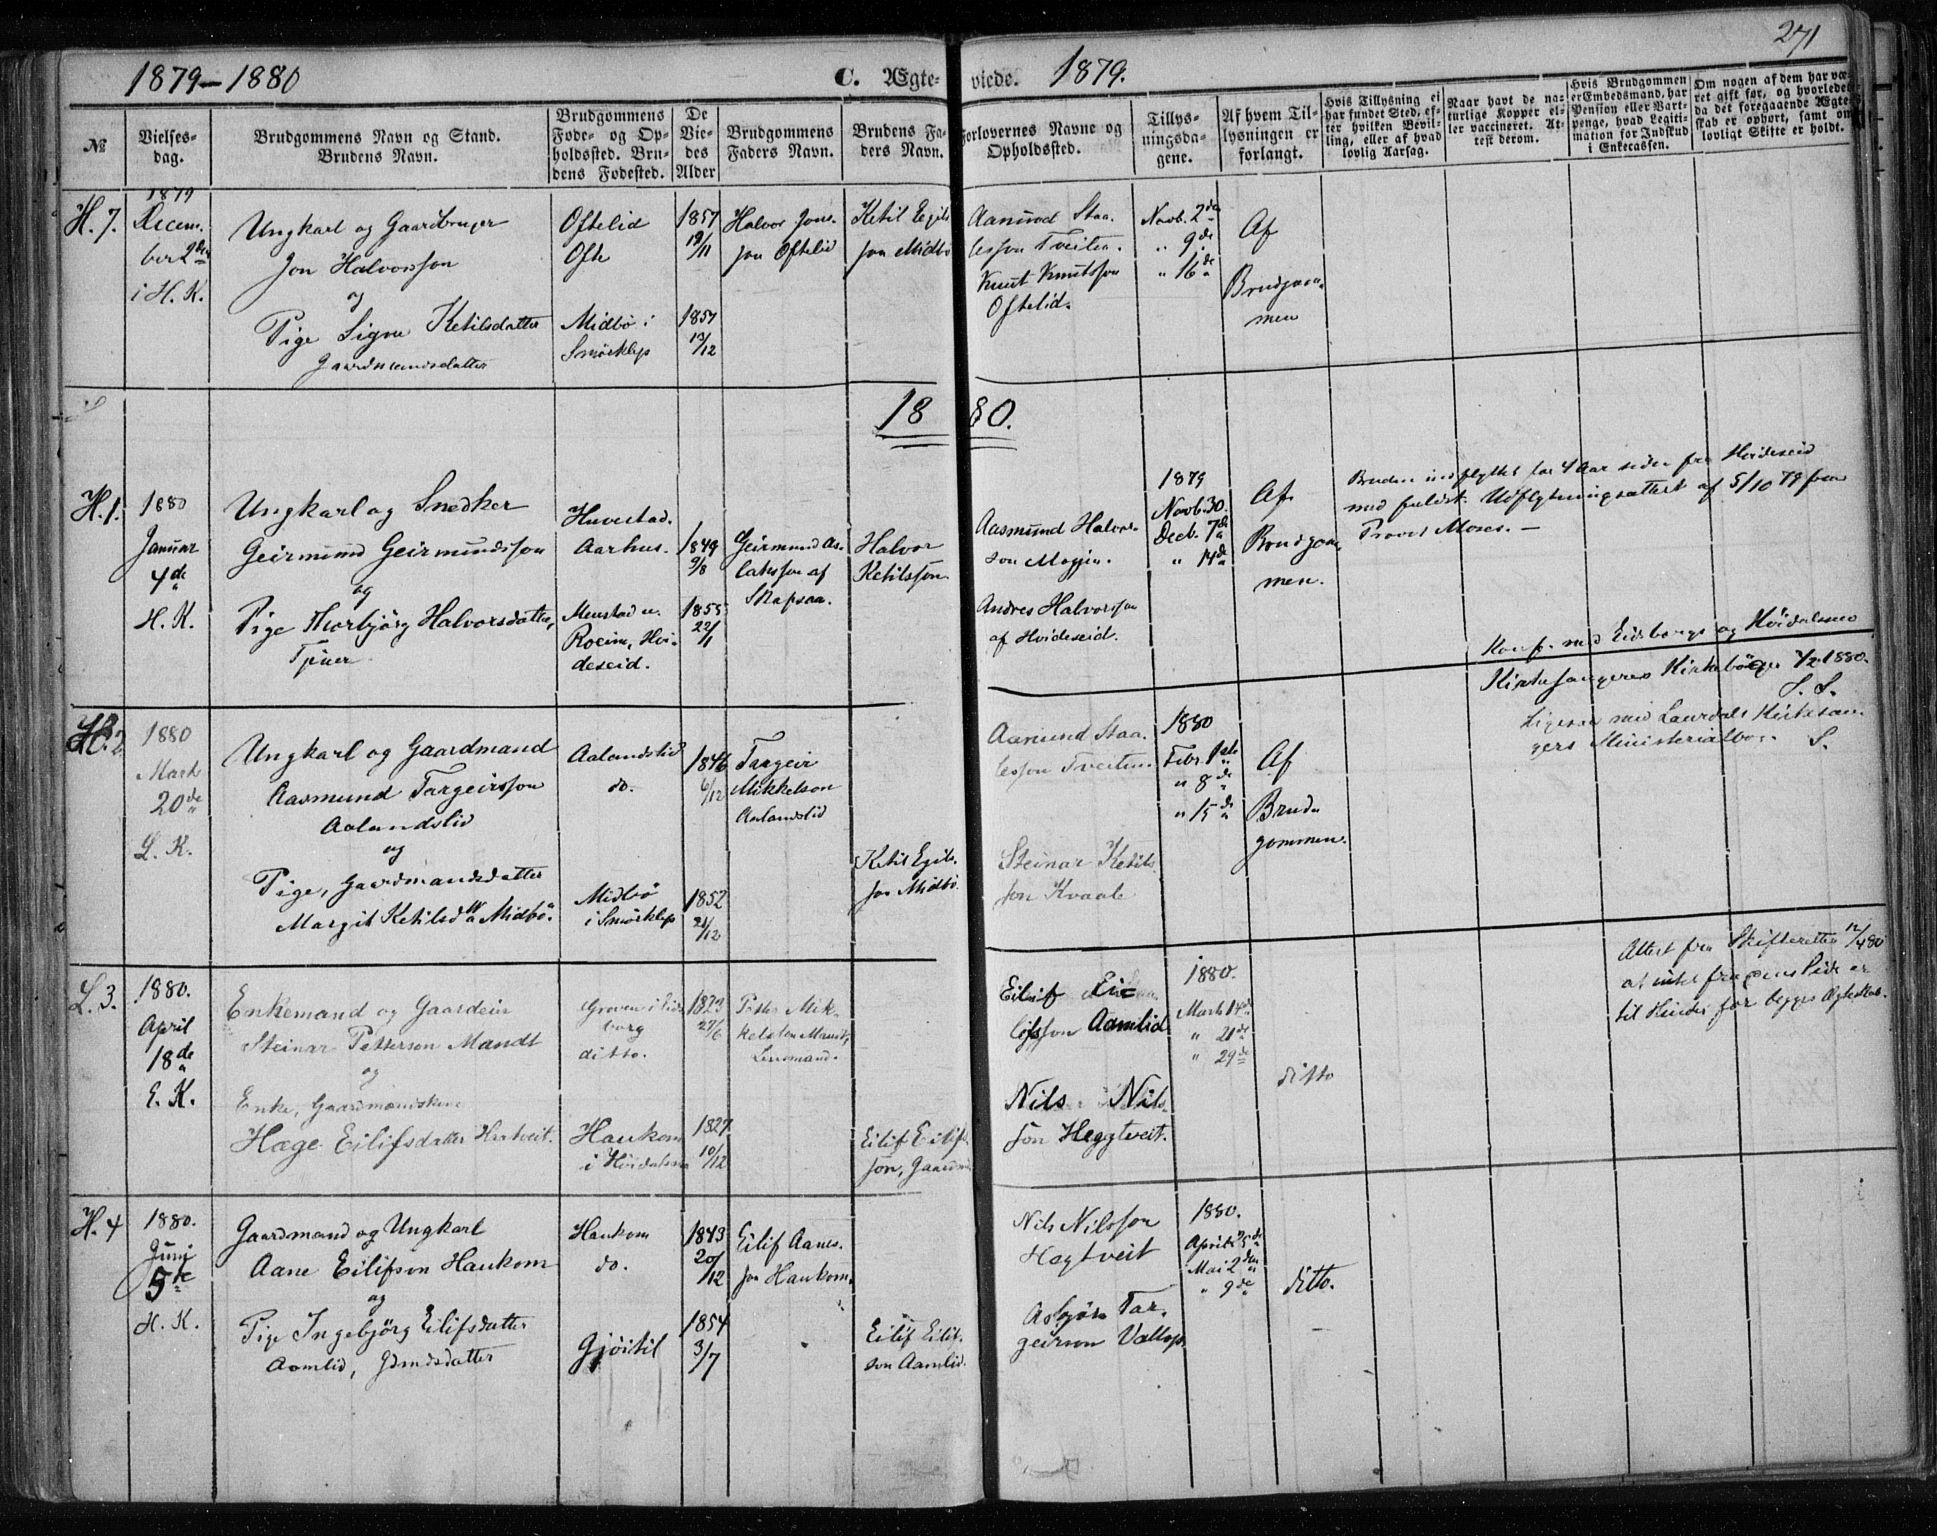 1879-1880
C. Ægte-
viede.
1879.
271
№
Vielses-
dag.
Brudgommens Navn og Stand.
Brudens Navn.
Brudgommens
Føde- og Op-
holdssted. Bru-
dens Fødested.
De
Vie-
des
Alder
Brudgommens
Faders Navn.
Brudens Fa-
ders Navn.
Forlovernes Navne og
Opholdssted.
Tillys-
ningsda-
gene.
Af hvem Til-
lysningen er
forlangt.
Hvis Tillysning ei
har fundet Sted, ef-
ter hvilken Bevil-
ling, eller af hvad
lovlig Aarsag.
Naar havt de na-
turlige Kopper el-
ler vaccineret. At-
test derom.
Hvis Brudgommen
er Embedsmand, har
Pension eller Vart-
penge, hvad Legiti-
mation for Indskud
i Enkecassen.
Om nogen af dem har væ-
ret gift før, og hvorledes
da det foregaaende Ægte-
skab er ophørt, samt om
lovligt Skifte er holdt.
H. 7.
1879
Decem-
ber 2den
i H. K.
Ungkarl og Gaardbruger
Jon Halvorsson
og
Pige Signe Ketilsdatter
Gaardmandsdatter
Oftelid
Ofte
Midbö i
Smörklep
1857
19/11
1857
13/12
Halvor Jons-
son Oftelid
Ketil Egils
son Midbö
Aanund Staa-
lesson Tveiten.
Knut Knutsson
Oftelid.
Novb. 2den
" 9de
" 16de
Af
Brudgom-
men
1880.
H. 1.
1880
Januar
4de
H. K.
Ungkarl og Snedker
Geirmund Geirmundsson
og
Pige Thorbjörg Halvorsdatter,
Tjener
Huvestad.
Aarhus.
Menstad u.
Roeim, Hvi-
deseid.
1849
9/8
1855
22/11
Geirmund As-
laksson af
Skafsaa.
Halvor
Ketilsson.
Aasmund Halvor-
son Mogjen.
Andres Halvorsson
af Hvideseid.
1879
Novb. 30.
Decb. 7de
" 14de
Af
Brudgom-
men.
Bruden indflyttet for 4 Aar siden fra Hvideseid
med fuldst. Udflytningsattest af 5/10 79 fra
Provst Moses. —
Konf. med Eidsborgs og Höidalsmo
Kirkesangeres Kirkebøger 7/2 1880.
S. S.
Ligesaa med Laurdals Kirkesan-
gers Ministerialbog. S.
H. 2
1880
Marts
20de
L. K.
Ungkarl og Gaardmand
Aasmund Targeirsson
Aalandslid
og
Pige, Gaardmandsdatter
Margit Ketilsdatter Midbö.
Aalandslid
do.
Midbö
i Smörklep
1846
6/12
1852
21/12
Targeir
Mikkelson
Aalandslid
Ketil Egils-
son Midbö.
Aanund Staa-
lesson Tveiten
Steinar Ketils
son Kvaale
1880
Febr. 1ste
" 8de
" 15de
Af
Brud-
gommen.
L. 3.
1880.
April
18de
E. K.
Enkemand og Gaardeier
Steinar Petterson Mandt
og
Enke, Gaardmandskone
Hæge Eilifsdatter Hegtveit.
Groven i Eids-
borg
ditto.
Haukom
i Höidalsmo
1823
27/6
1827
10/12
Petter Mik-
kelsson Mandt,
Lensmand.
Eilif Eilifs
son, Gaardmd
Eilif Ei-
lifsson Aamlid
Nils Nils-
son Heggtveit.
1880.
Marts 14de
" 21de
" 29de
ditto
Attest fra Skifteretten 12/4 80
at intet fra dens Side er
til Hinder for begges Ægteskab.
H. 4
1880.
Juni
5te
H. K.
Gaardmand og Ungkarl
Aane Eilifson Haukom
og
Pige Ingebjörg Eilifsdatter
Aamlid, Gdmdsdatter
Haukom
do.
Gjöitil
1843
20/12
1854
3/7
Eilif Aanes-
son Haukom.
Eilif Eilif-
son Aamlid.
Nils Nilsson
Hegtveit
Asbjörn Tar-
geirson Valleps
1880.
April 25de
Mai 2den
" 9de
ditto.